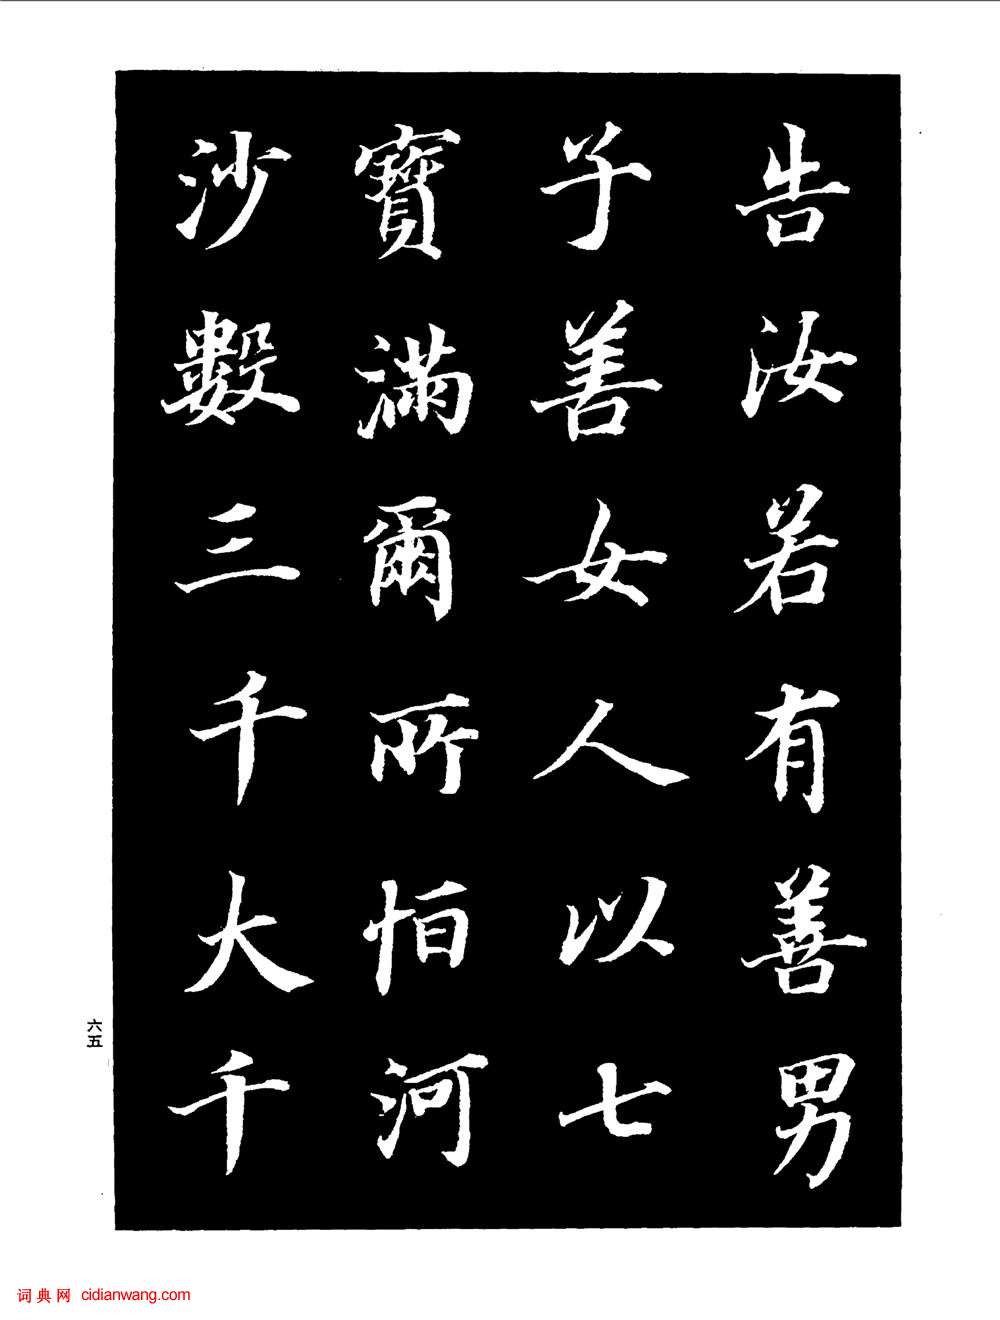 告汝若有善男
子善女人以七
寶滿爾所恒河
沙數三千大千
六五
词典网 cidianwang.com